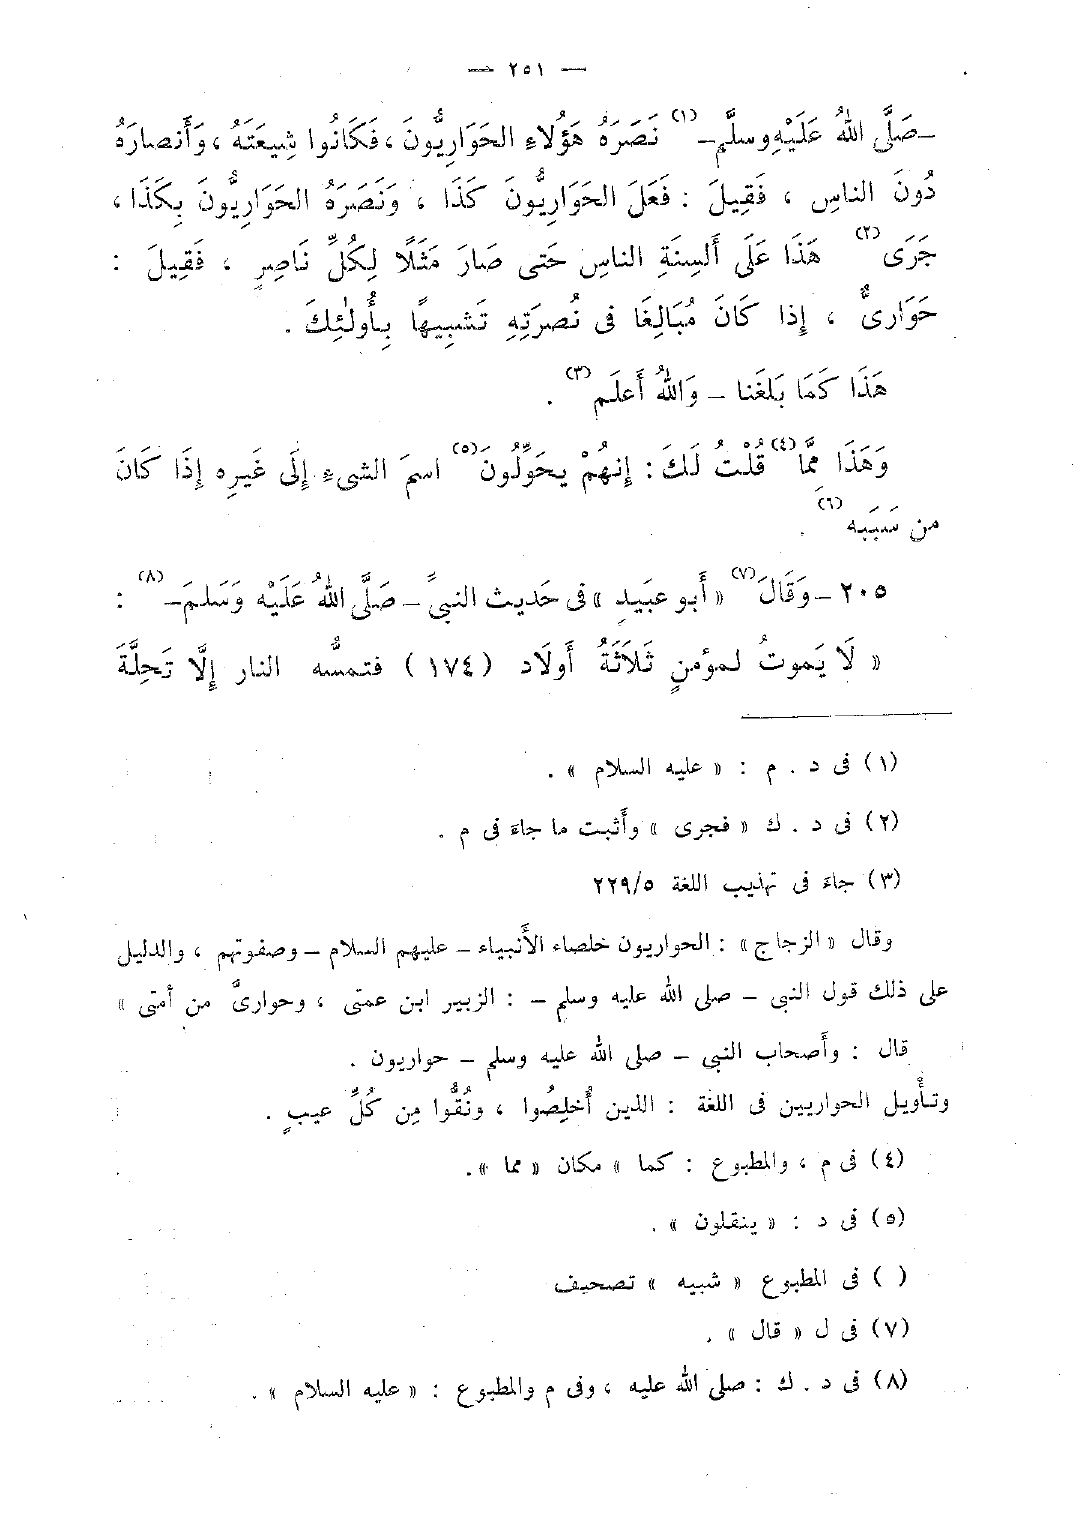 — ٢٥١ —
—صَلَّى اللهُ عَلَيْهِ وسلَّم—(١) نَصَرَهُ هَؤُلاءِ الحَوَارِيُّونَ ، فَكَانُوا شِيعَتَهُ ، وَأَنصارَهُ
دُونَ الناسِ ، فَقِيلَ : فَعَلَ الحَوَارِيُّونَ كَذَا ، وَنَصَرَهُ الحَوَارِيُّونَ بِكَذَا ،
جَرَى(٢) هَذَا عَلَى أَلسِنَةِ الناسِ حَتى صَارَ مَثَلًا لِكُلِّ نَاصِرٍ ، فَقِيلَ :
حَوَارىٌّ ، إِذا كَانَ مُبَالِغًا فى نُصرَتِهِ تَشبِيهًا بِأُولٰئِكَ .
هَذَا كَمَا بَلَغَنا — وَاللهُ أَعلَم(٣) .
وَهَذَا مِمَّا(٤) قُلْتُ لَكَ : إِنهُمْ يحَوِّلُونَ(٥) اسمَ الشىءِ إِلَى غَيرِه إِذَا كَانَ
من سَبَبِه(٦) .
٢٠٥ — وَقَالَ(٧) « أَبو عبَيدٍ » فى حَديث النبىِّ — صَلَّى اللهُ عَلَيْه وَسَلمَ—(٨) :
« لَا يَموتُ لمؤمنٍ ثَلَاثَةُ أَولَاد (١٧٤) فتمسُّه النار إِلَّا تَحِلَّةَ
(١) فى د . م : « عليه السلام » .
(٢) فى د . ك « فجرى » وأَثبت ما جاءَ فى م .
(٣) جاءَ فى تهذيب اللغة ٢٢٩/٥
وقال « الزجاج » : الحواريون خلصاء الأَنبياء — عليهم السلام — وصفوتهم ، والدليل
على ذلك قول النبى — صلى الله عليه وسلم — : الزبير ابن عمتى ، وحوارىٌّ من أمتى »
قال : وأَصحاب النبى — صلى الله عليه وسلم — حواريون .
وتأْويل الحواريين فى اللغة : الذين أُخلِصُوا ، ونُقُّوا مِن كُلِّ عيبٍ .
(٤) فى م ، والمطبوع : كما » مكان « مما » .
(٥) فى د : « ينقلون » .
( ) فى المطبوع « شبيه » تصحيف
(٧) فى ل « قال » .
(٨) فى د . ك : صلى الله عليه ، وفى م والمطبوع : « عليه السلام » .